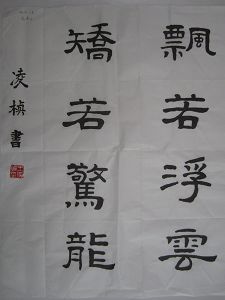 飄若浮雲
矯若驚龍
凌楨書